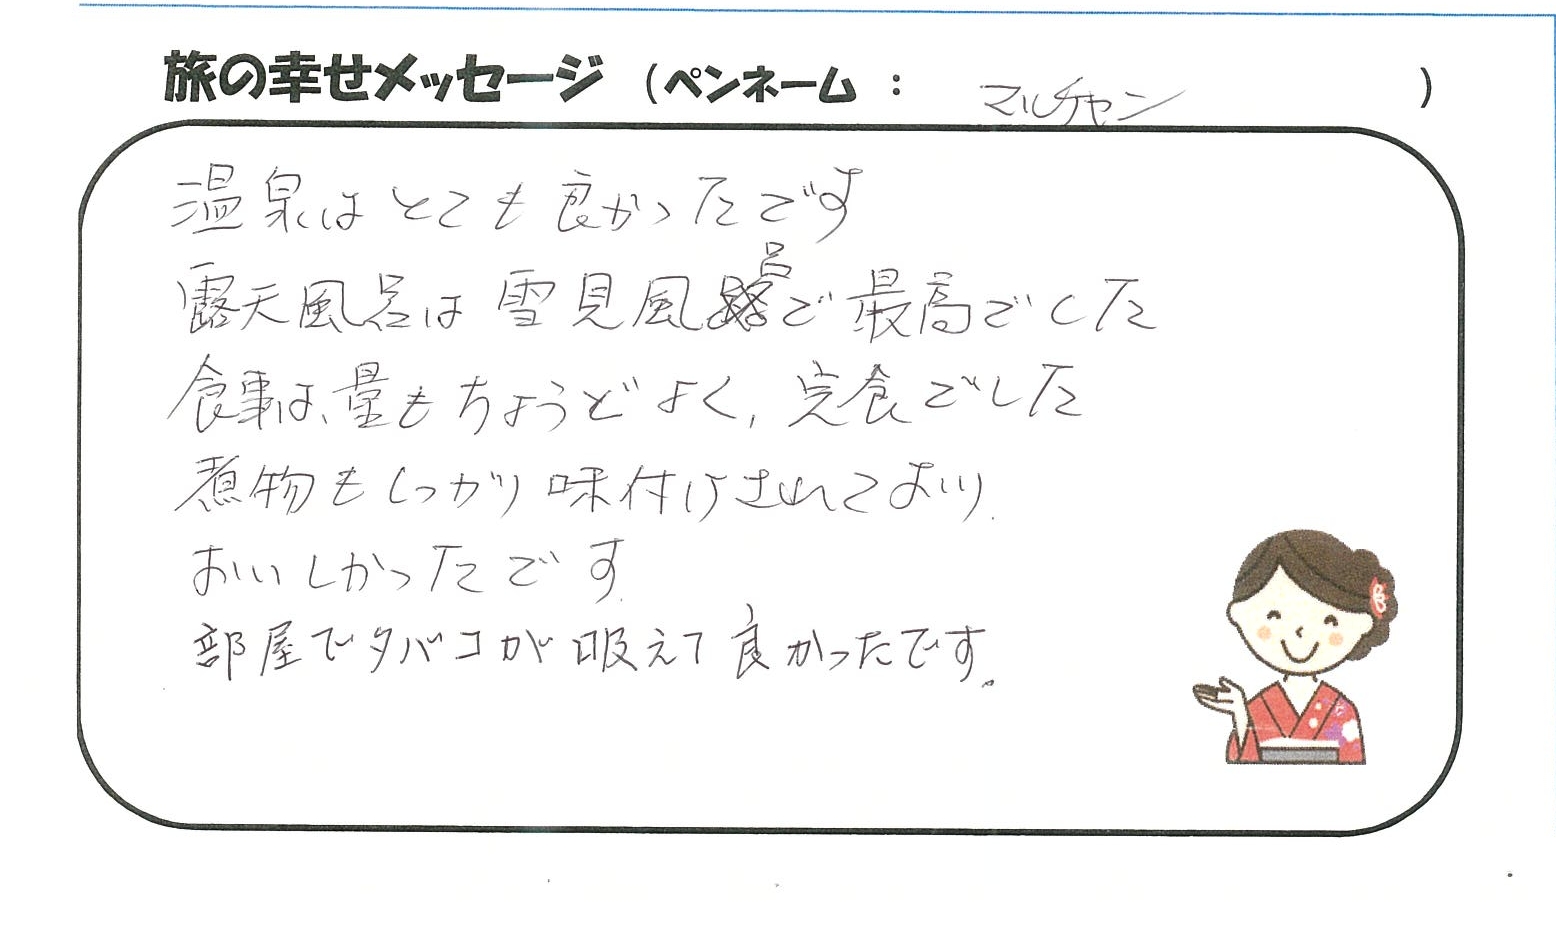 旅の幸せメッセージ (ペンネーム : マルチャン )
温泉はとても良かったです
露天風呂は雪見風呂で最高でした
食事は、量もちょうどよく、完食でした
煮物もしっかり味付けされており.
おいしかったです.
部屋でタバコが吸えて良かったです。